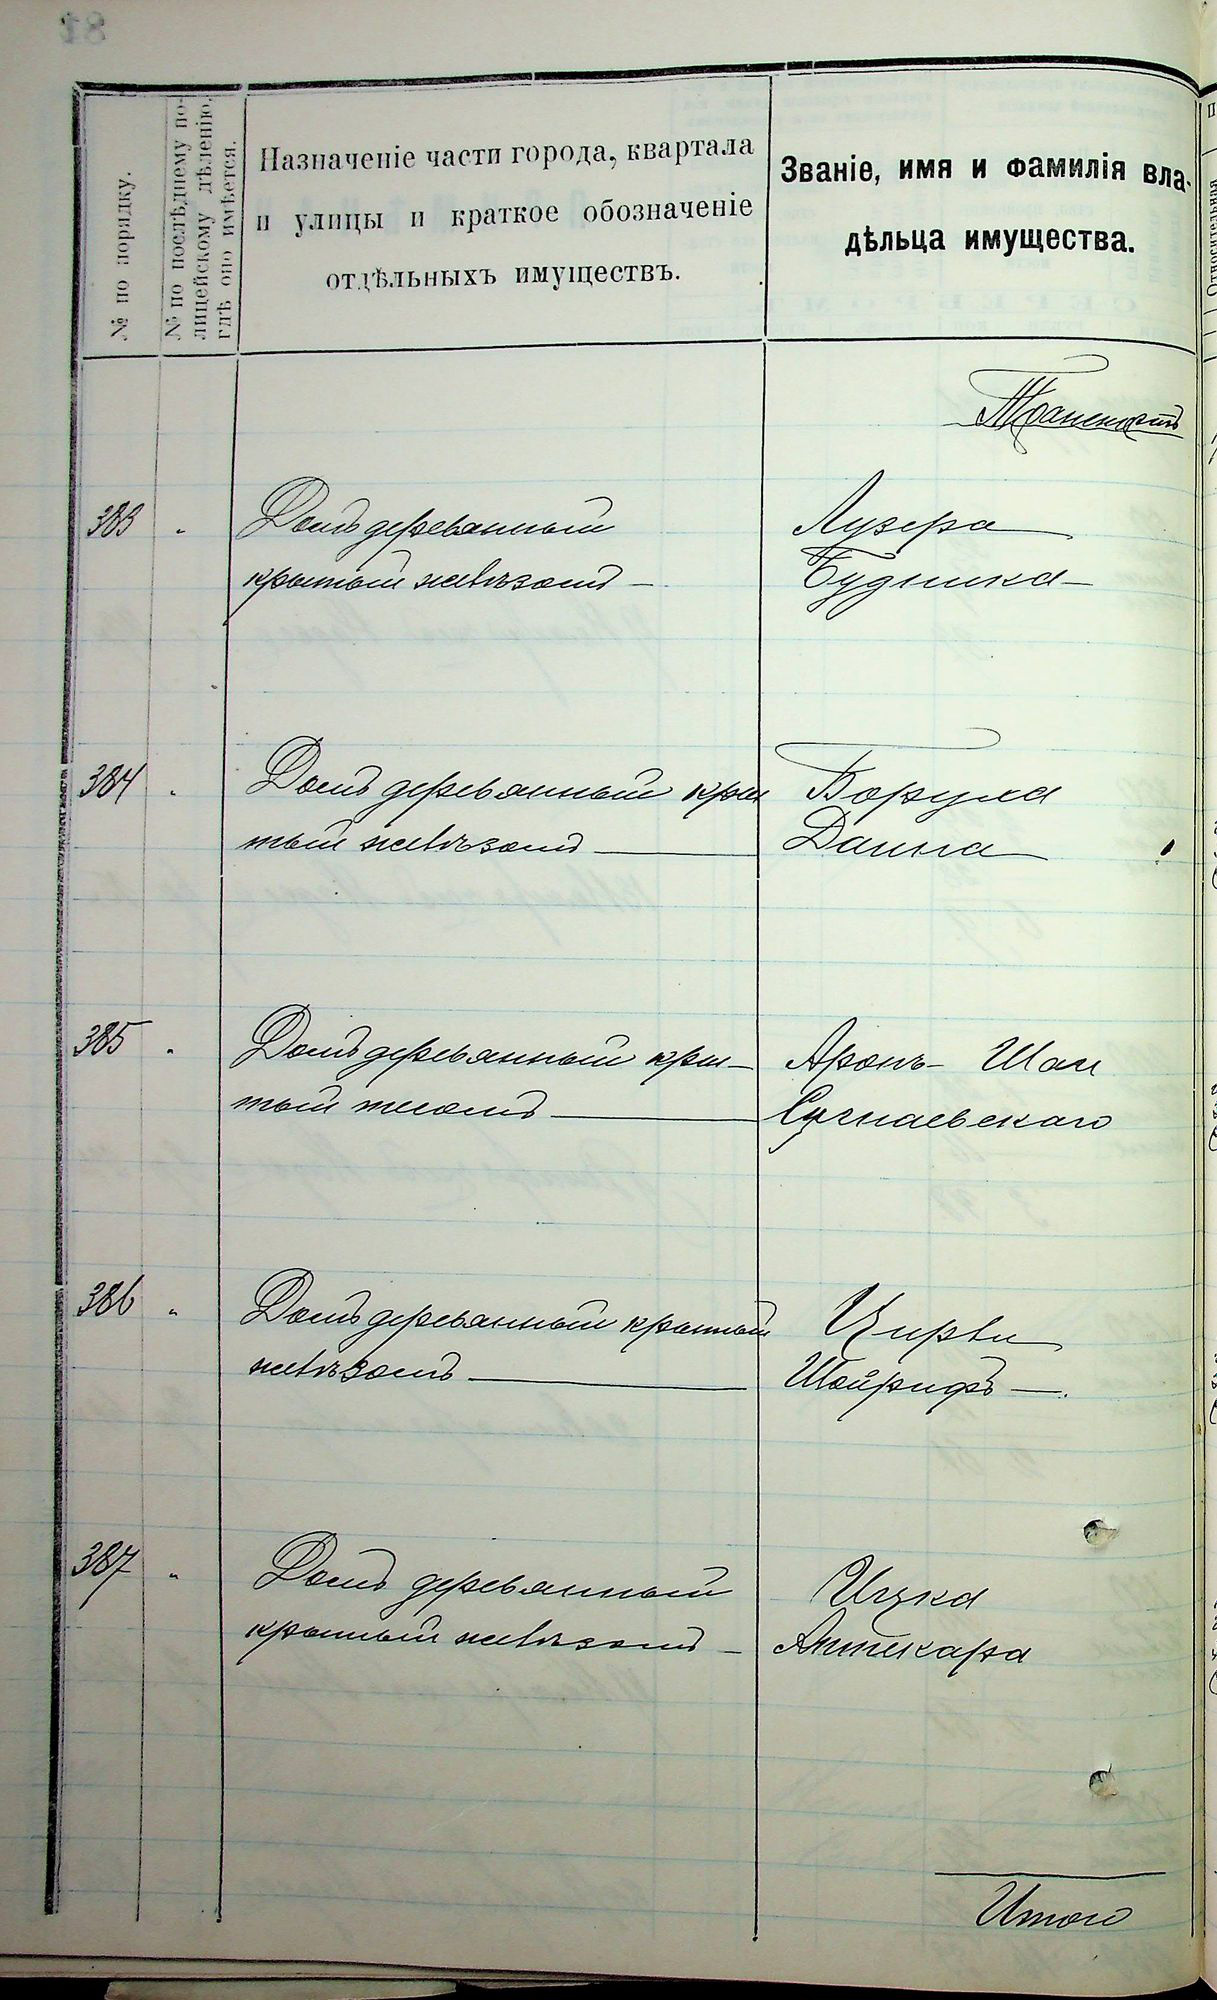 № по порядку.
№ по послѣднему по-
лицейскому дѣленію,
гдѣ оно имѣется.
Назначеніе части города, квартала
и улицы и краткое обозначеніе
отдѣльныхъ имуществъ.
Званіе, имя и фамилія вла-
дѣльца имущества.
Транспортъ
383 „ Домъ деревянный Лузера
крытый желѣзомъ — Будника —
384 „ Домъ деревянный кры Боруха
тый желѣзомъ — Данна
385 „ Домъ деревянный кры- Аронъ- Шая
тый тесомъ —
386 „ Домъ деревянный крытый Цирви
желѣзомъ — Шайрифъ —
387 „ Домъ деревянный Ицка
крытый желѣзомъ — Аптекара
Итого